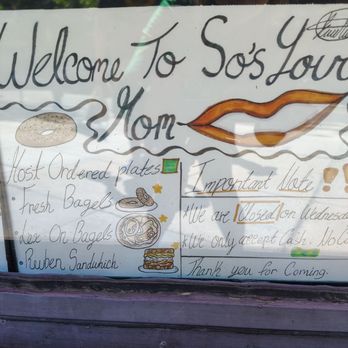 Welcome To So's Your
Mom
Most Ordered plates
• Fresh Bagels
• Lox On Bagels
• Ruben Sandwhich
Important Note !!
*We are Closed on Wednesda
*We only accept Cash. No C
Thank you for Coming.